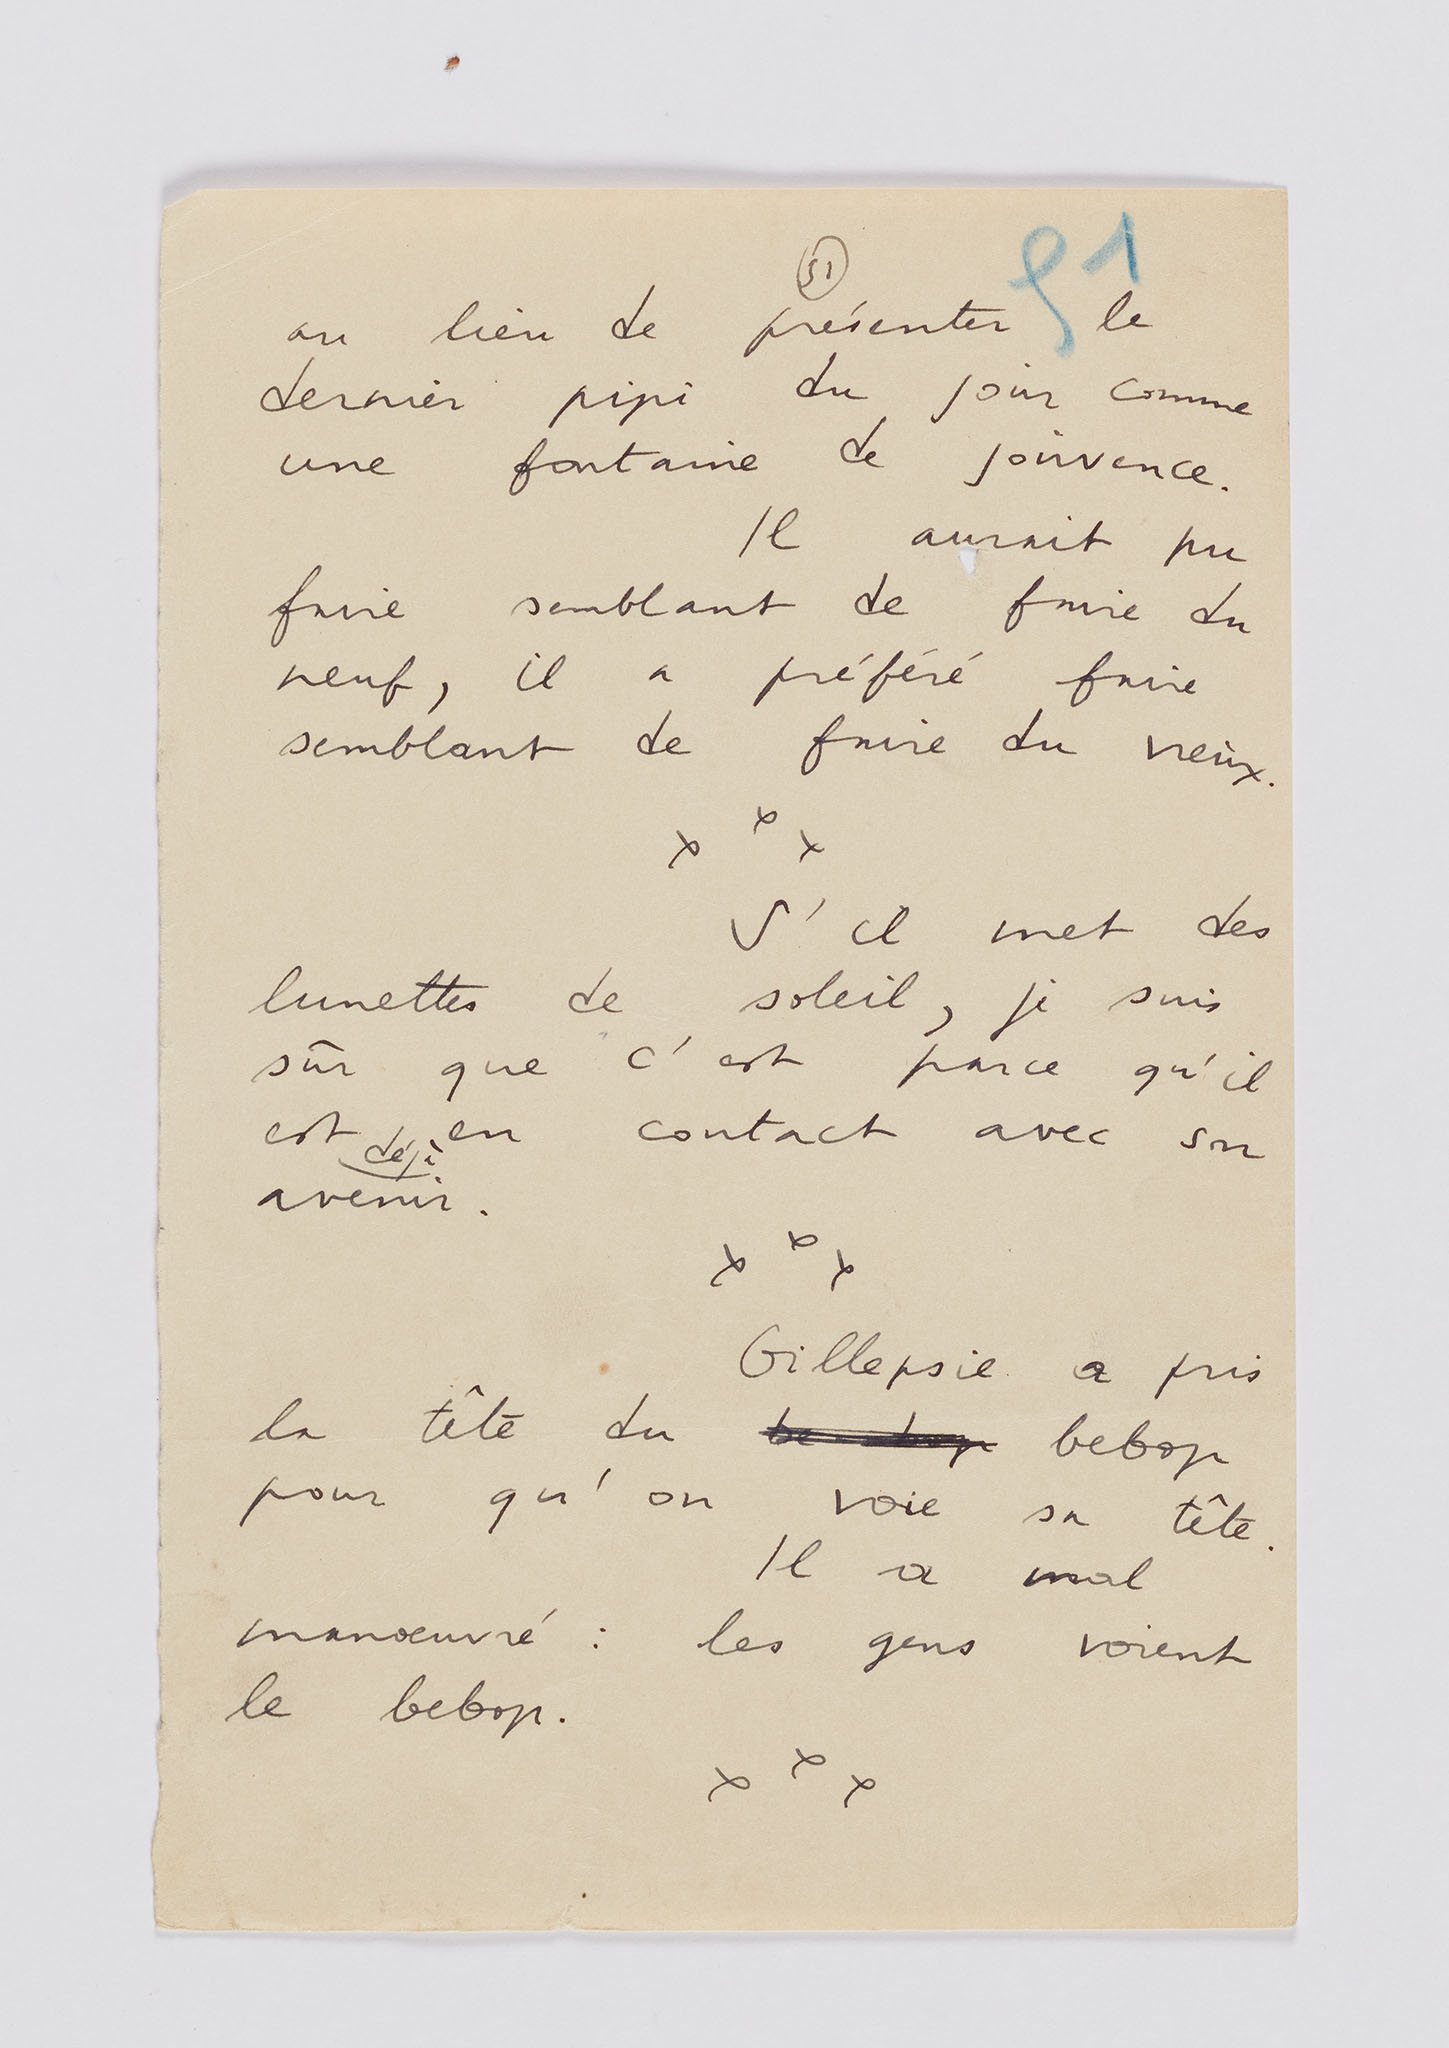 51
91
au lieu de présenter le
dernier pipi du jour comme
une fontaine de jouvence.
Il aurait pu
faire semblant de faire du
neuf, il a préféré faire
semblant de faire du vieux.
x x x
S'il met des
lunettes de soleil, je suis
sûr que c'est parce qu'il
est en contact avec son
déjà
avenir.
x x x
Gillepsie a pris
la tête du be-bop bebop
pour qu'on voie sa tête.
Il a mal
manœuvré : les gens voient
le bebop.
x x x